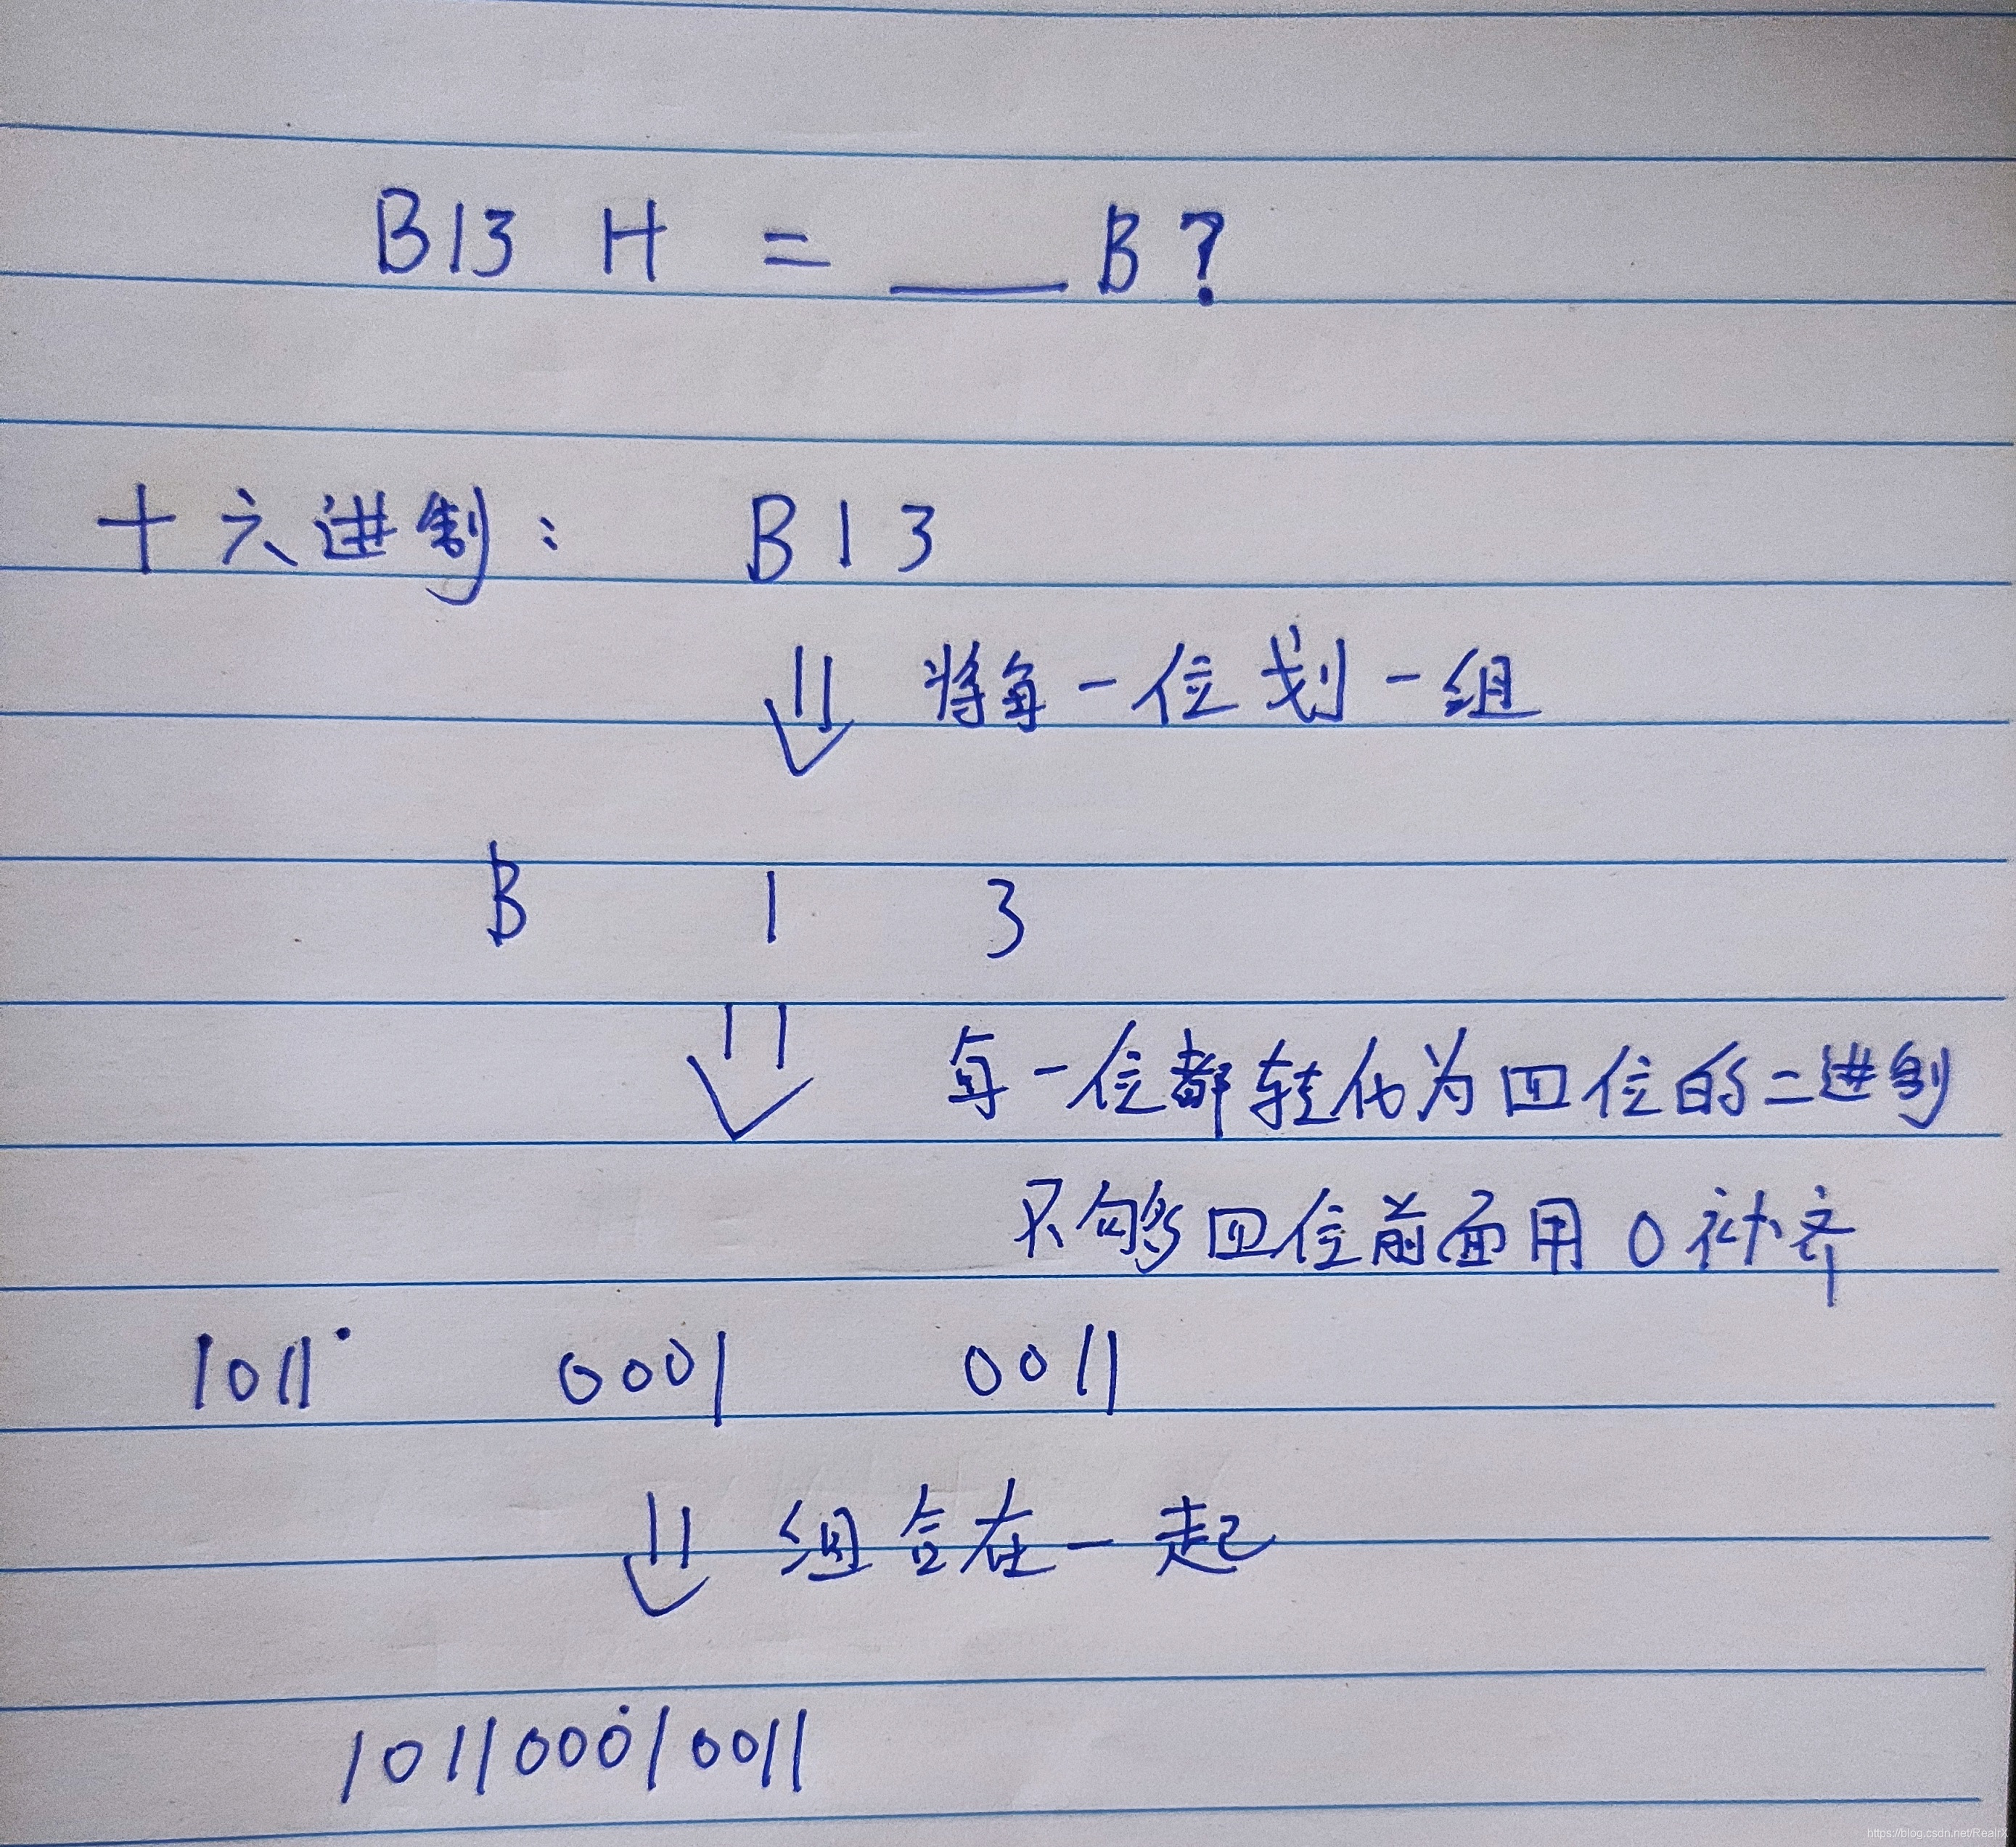 B13 H = ___ B?
十六进制: B13
将每一位划一组
B 1 3
每一位都转化为四位的二进制
不够四位前面用0补齐
1011 0001 0011
组合在一起
101100010011